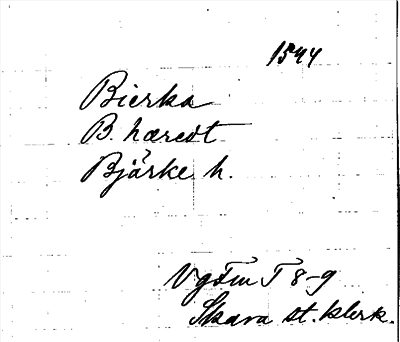 1544
Bierka
B. hæredt
Bjärke h.
VgFmT I 8-9
Skara st. klerk.